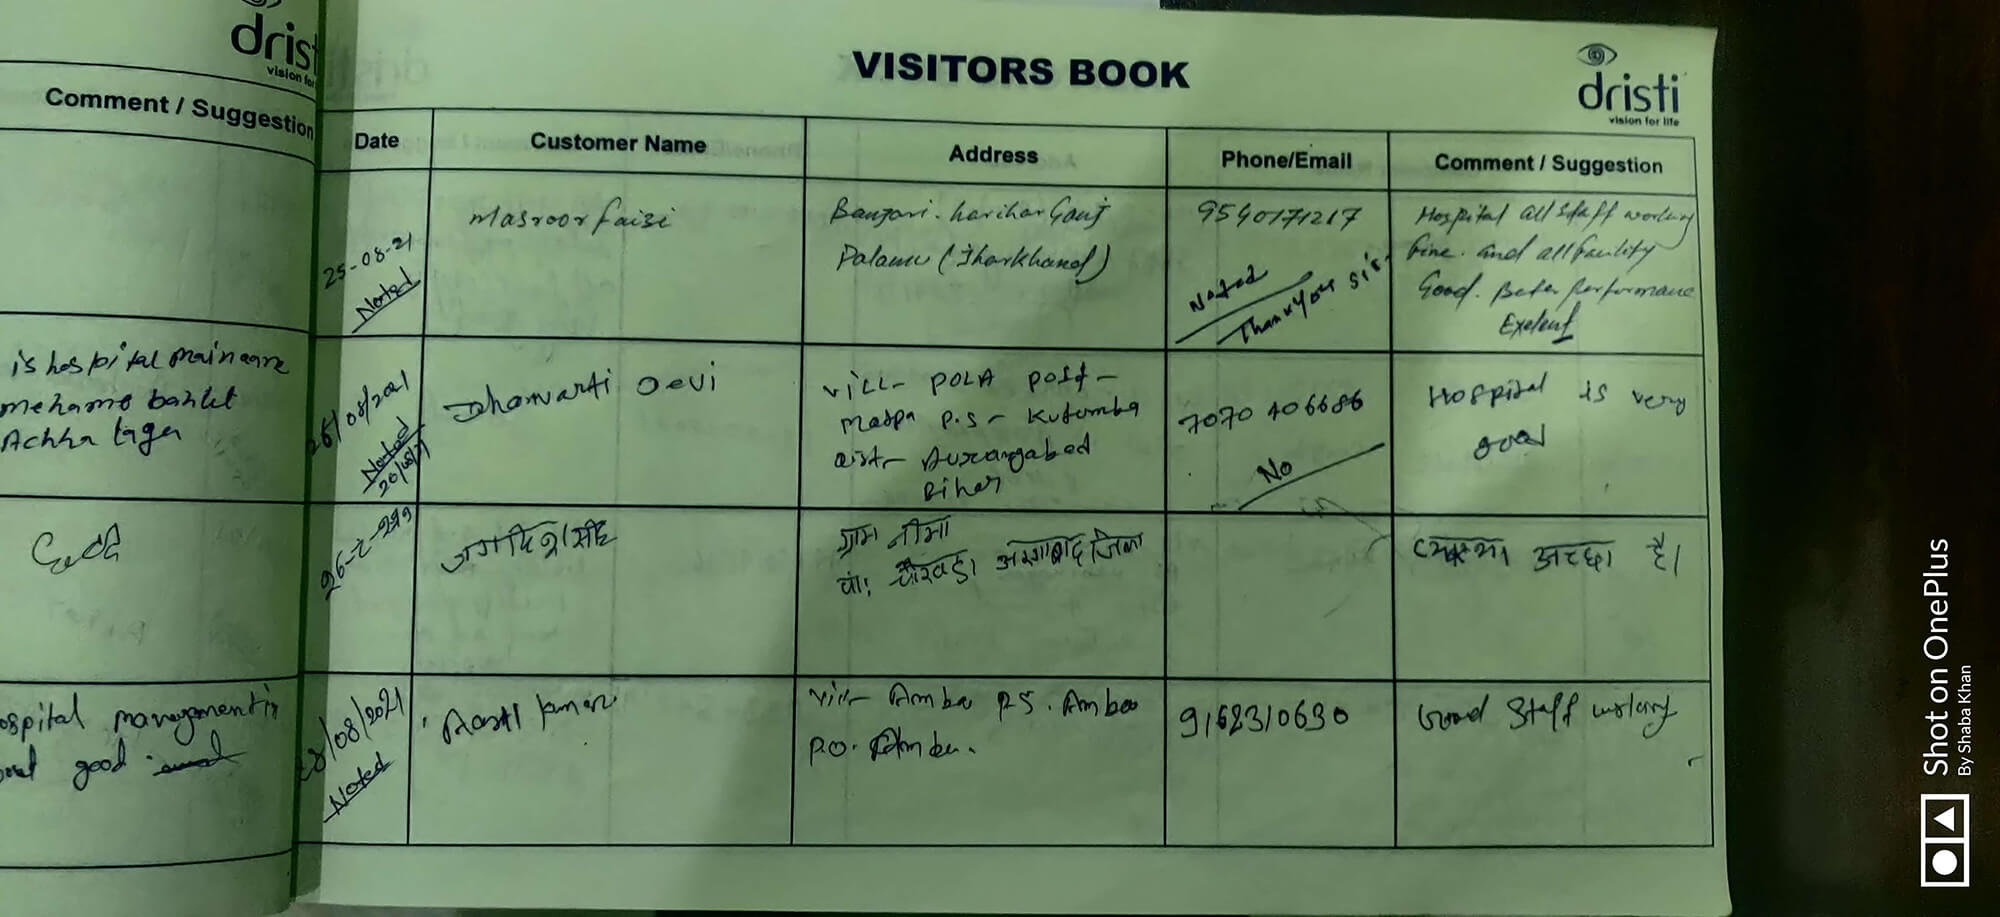 dristi
vision for
Comment / Suggestion
is hospital main aane
mehamo bahut
Achha laga
ospital management is
good
VISITORS BOOK
dristi
vision for life
Date
Customer Name
Address
Phone/Email
Comment / Suggestion
25-08-21
Noted
Masroor faizi
Banjari. harihar Ganj
Palamu (Jharkhand)
9540171217
Noted
Thankyou sir.
Hospital all staff working
fine. and all facility
Good. Beter performance
Exelent
26/08/2021
Noted
26/08/21
Dhanvarti Devi
vill- POLA Post-
Matpa P.S- Kutumba
dist- Aurangabad
Bihar
7070 406686
No
Hospital is very
good
जगदिश सिंह
ग्राम नीमा
जिला
व्यवस्था अच्छा है।
28/08/2021
Noted
Kumar
vill- Amba P.S. Amba
P.O. Amba.
9162310630
Good Staff working
Shot on OnePlus
By Shaba Khan